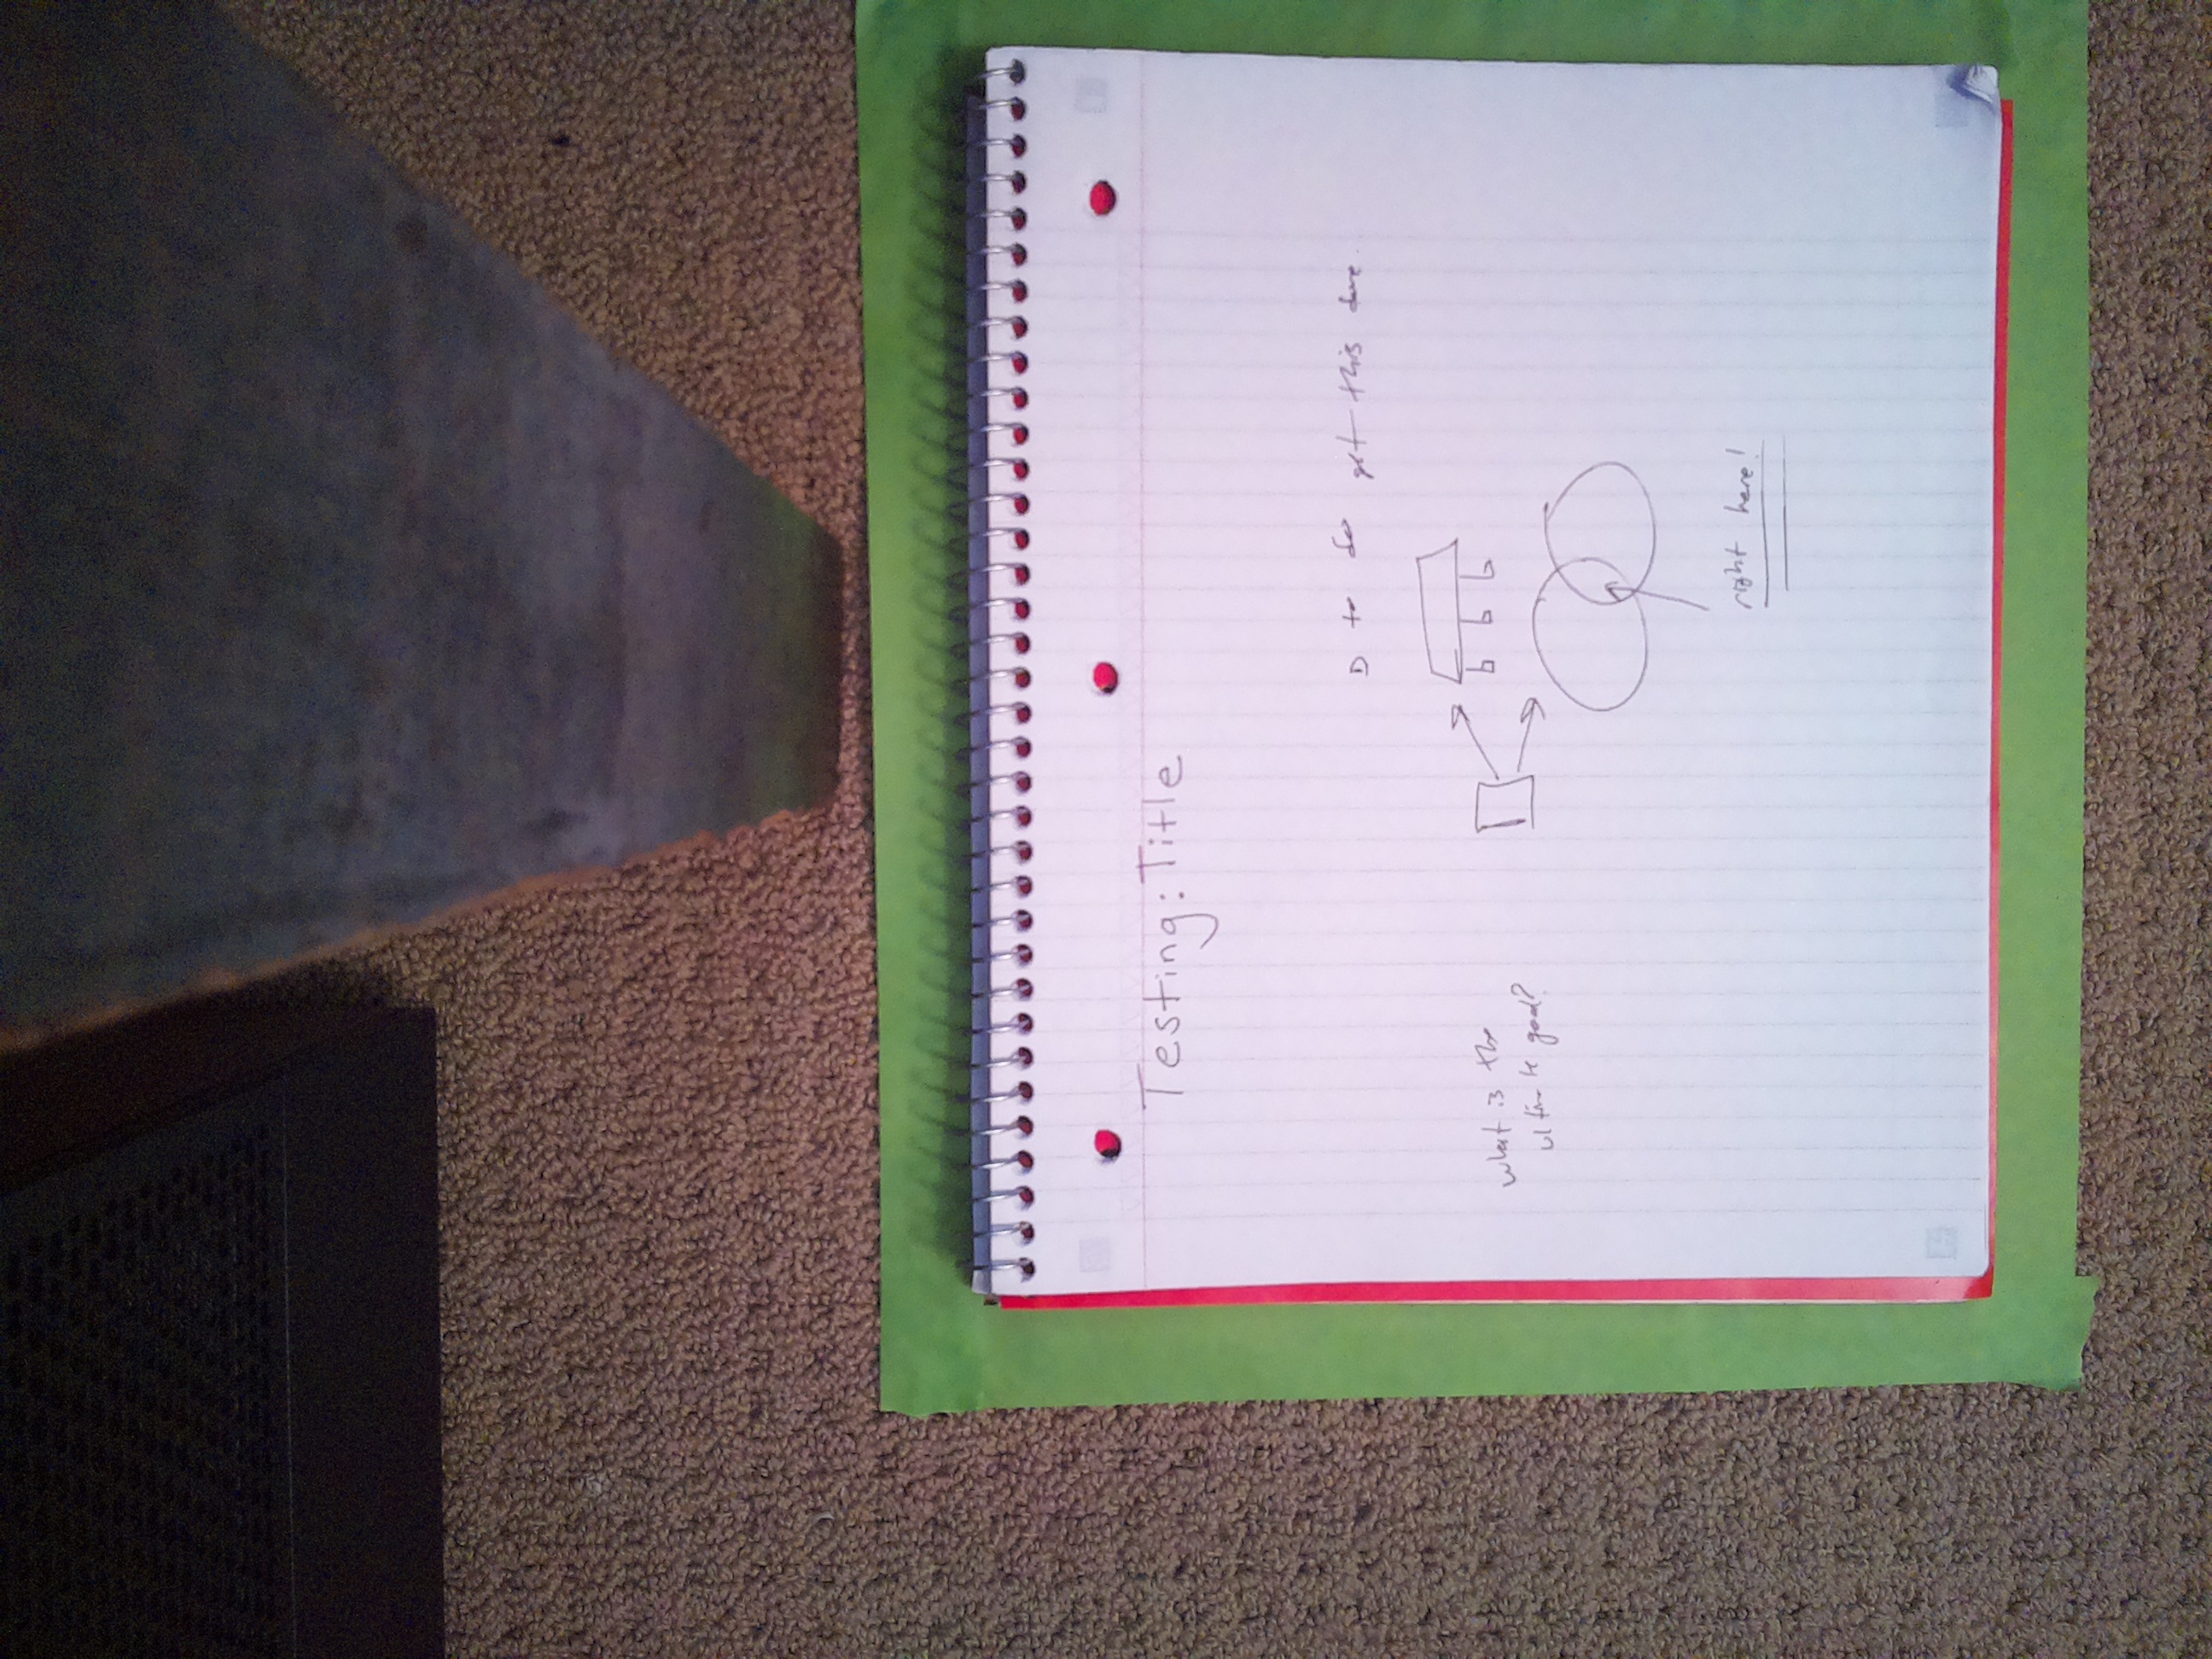 Testing: Title
to do get this done.
what is the
ultimate goal?
right here!